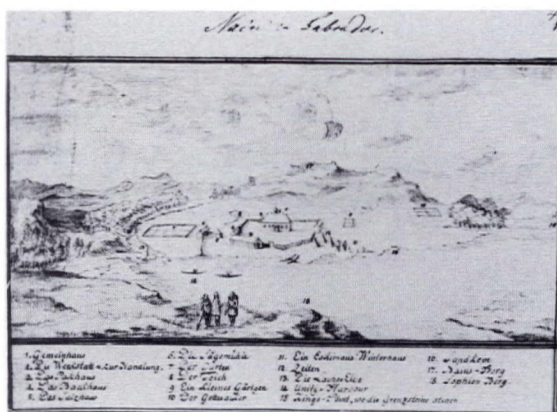 Nain in Labrador.
1. Gemeinhaus
2. Die Werkstat u. zur Handlung.
3. Das Pakhaus
4. Das Backhaus
5. Das Salzhaus
6. Die Sägemühle
7. Der Garten
8. Der Teich
9. Ein kleines Gärtgen
10. Der Gottsaker
11. Ein Eskimaux Winterhaus
12. Zelten
13. Die
14. Unity-Harbour
15. Kings-Point, wo die Grenzsteine
16.
17. Berg
18. Sophien Berg